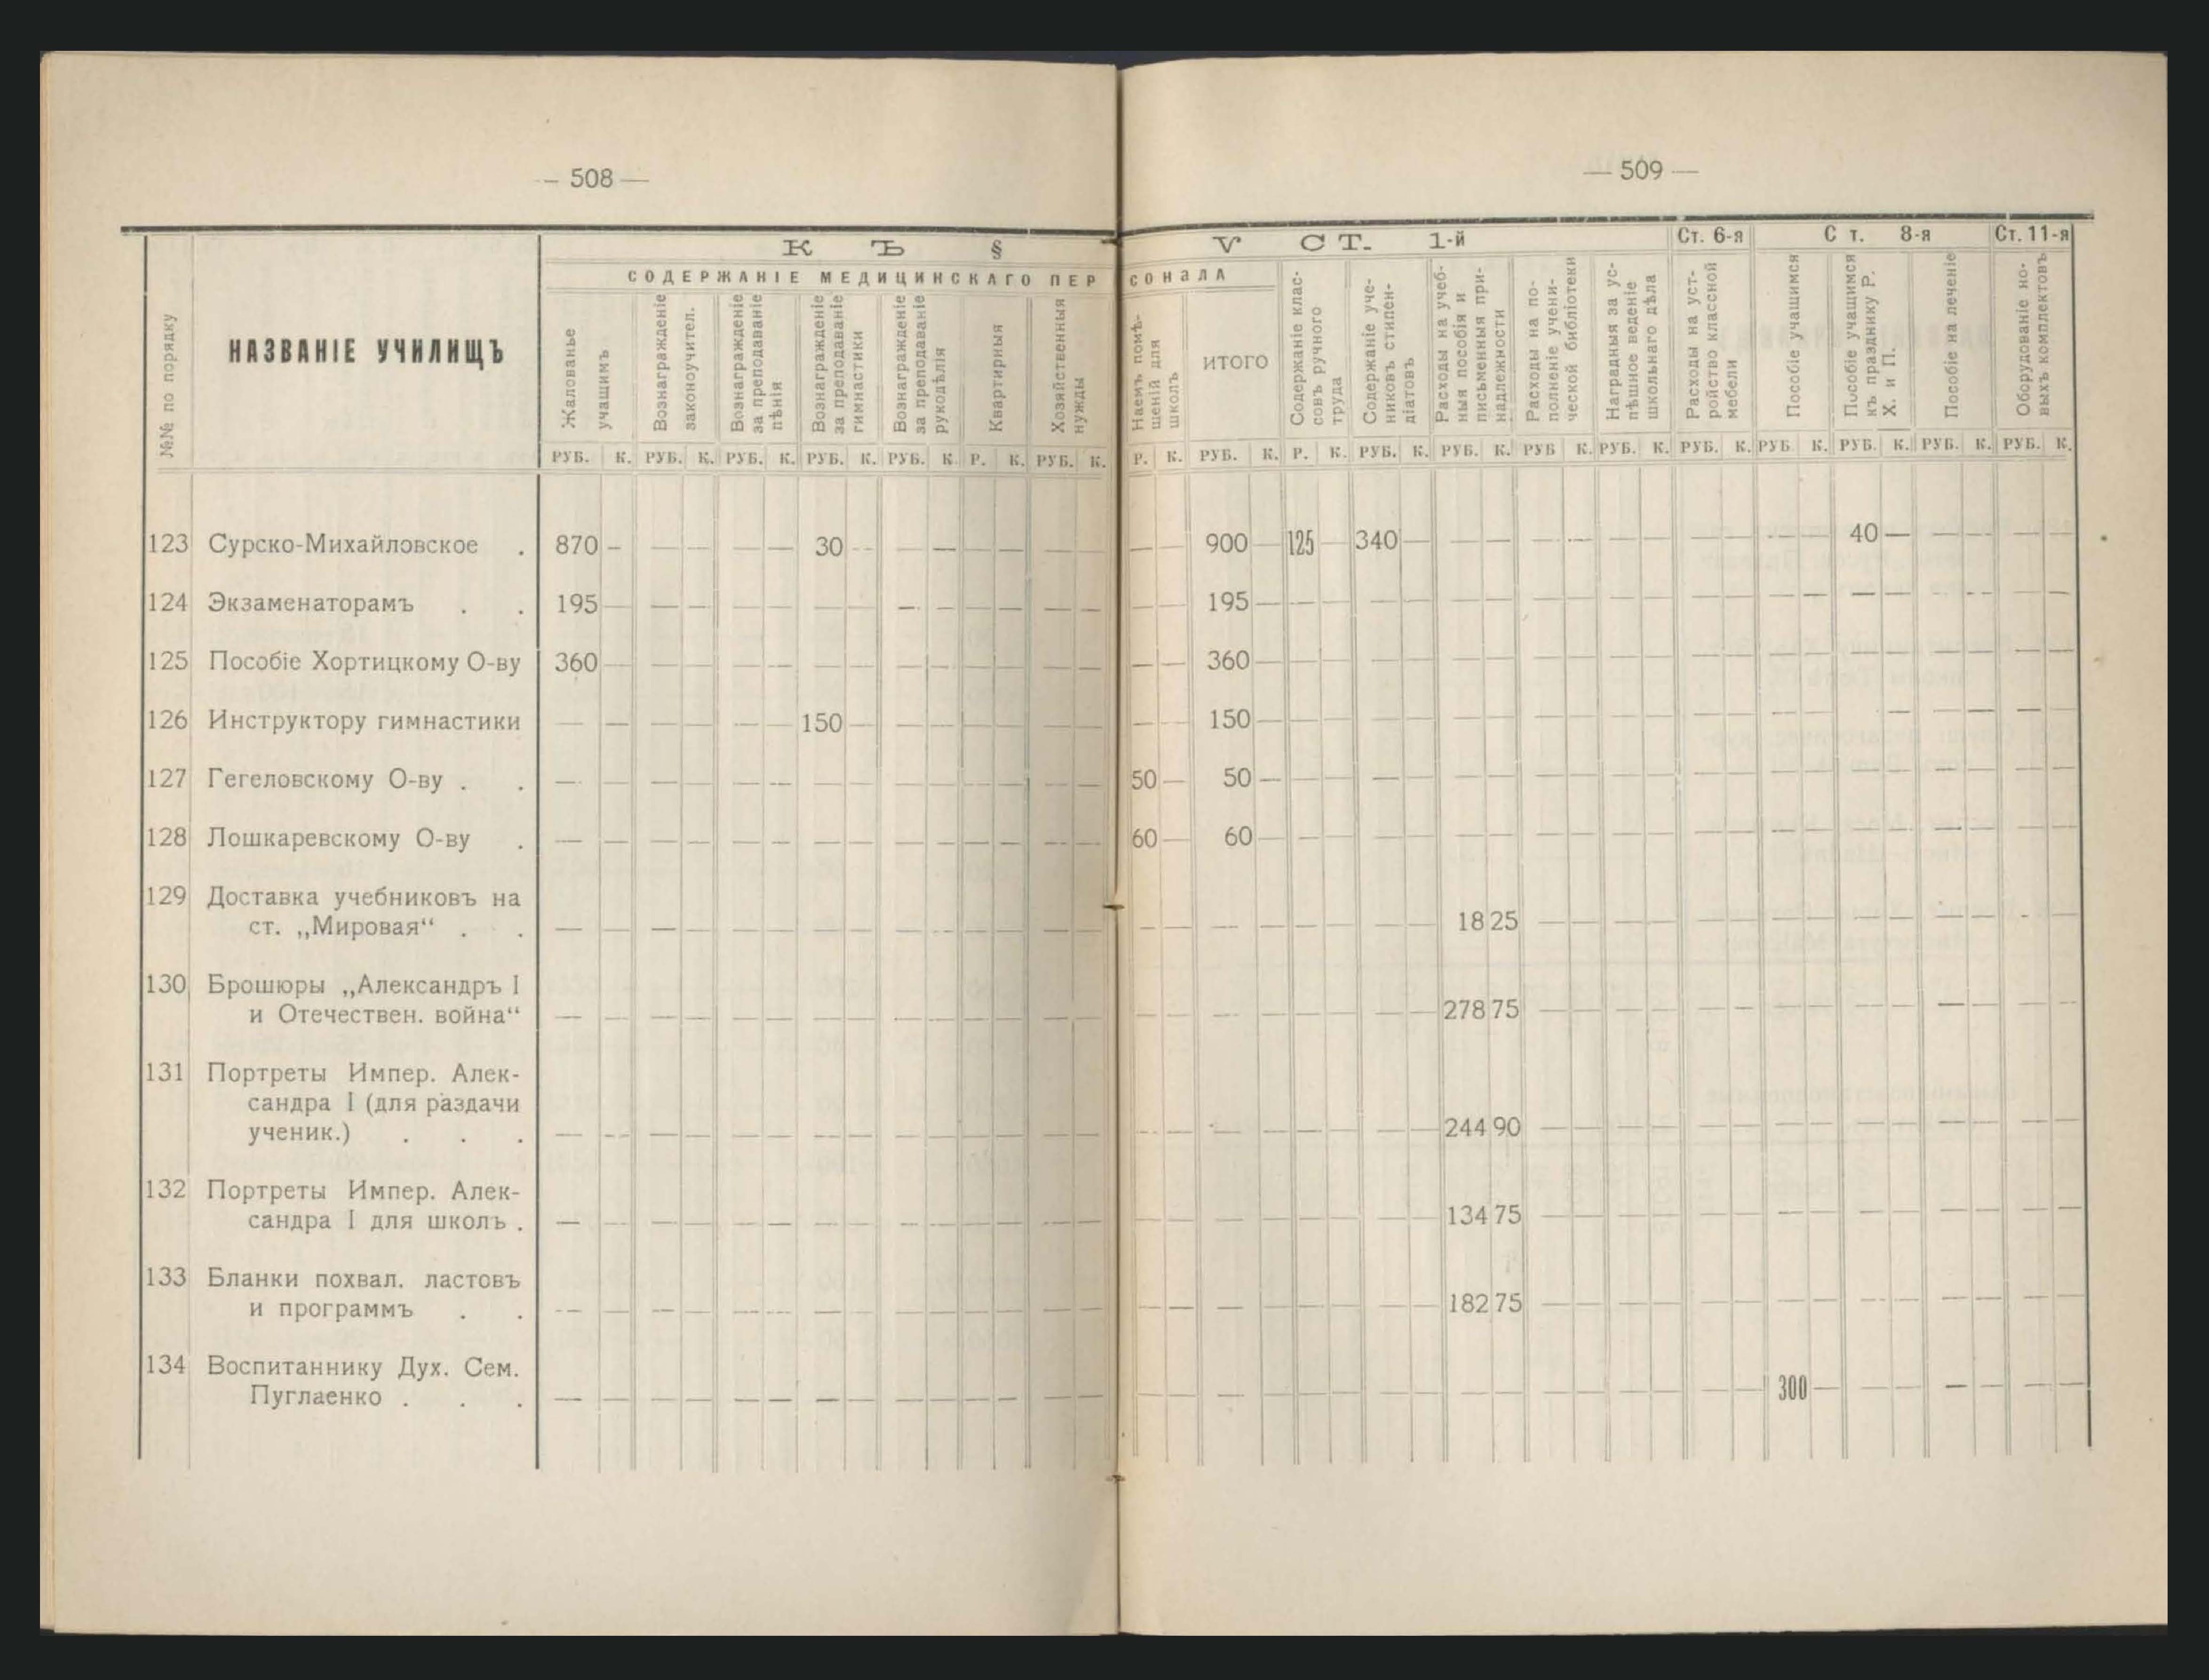 — 508 —
№№ по порядку
НАЗВАНІЕ УЧИЛИЩЪ
КЪ §
СОДЕРЖАНІЕ МЕДИЦИНСКАГО ПЕР
Жалованье
учащимъ
Вознагражденіе
законоучител.
Вознагражденіе
за преподаваніе
пѣнія
Вознагражденіе
за преподаваніе
гимнастики
Вознагражденіе
за преподаваніе
рукодѣлія
Квартирныя
Хозяйственныя
нужды
РУБ. К. РУБ. К. РУБ. К. РУБ. К. РУБ. К. Р. К. РУБ. К.
123 Сурско-Михайловское . 870 — — — — — 30 — — — — — — —
124 Экзаменаторамъ . . 195 — — — — — — — — — — — — —
125 Пособіе Хортицкому О-ву 360 — — — — — — — — — — — — —
126 Инструктору гимнастики — — — — — — 150 — — — — — — —
127 Гегеловскому О-ву . . — — — — — — — — — — — — — —
128 Лошкаревскому О-ву . — — — — — — — — — — — — — —
129 Доставка учебниковъ на
ст. „Мировая“ . . — — — — — — — — — — — — — —
130 Брошюры „Александръ I
и Отечествен. война“ — — — — — — — — — — — — — —
131 Портреты Импер. Алек-
сандра I (для раздачи
ученик.) . . . — — — — — — — — — — — — — —
132 Портреты Импер. Алек-
сандра I для школъ . — — — — — — — — — — — — — —
133 Бланки похвал. ластовъ
и программъ . . — — — — — — — — — — — — — —
134 Воспитаннику Дух. Сем.
Пуглаенко . . . — — — — — — — — — — — — — —
— 509 —
V СТ. 1-й
Ст. 6-я
Ст. 8-я
Ст. 11-я
СОНАЛА
Наемъ помѣ-
щеній для
школъ
ИТОГО
Содержаніе клас-
совъ ручного
труда
Содержаніе уче-
никовъ стипен-
діатовъ
Расходы на учеб-
ныя пособія и
письменныя при-
надлежности
Расходы на по-
полненіе учени-
ческой библіотеки
Наградныя за ус-
пѣшное веденіе
школьнаго дѣла
Расходы на уст-
ройство классной
мебели
Пособіе учащимся
Пособіе учащимся
къ празднику Р.
Х. и П.
Пособіе на леченіе
Оборудованіе но-
выхъ комплектовъ
Р. К. РУБ. К. Р. К. РУБ. К. РУБ. К. РУБ К. РУБ. К. РУБ. К. РУБ К. РУБ. К. РУБ. К. РУБ. К.
— — 900 — 125 — 340 — — — — — — — — — — — 40 — — — — —
— — 195 — — — — — — — — — — — — — — — — — — — — —
— — 360 — — — — — — — — — — — — — — — — — — — — —
— — 150 — — — — — — — — — — — — — — — — — — — — —
50 — 50 — — — — — — — — — — — — — — — — — — — — —
60 — 60 — — — — — — — — — — — — — — — — — — — — —
— — — — — — — — 18 25 — — — — — — — — — — — — — —
— — — — — — — — 278 75 — — — — — — — — — — — — — —
— — — — — — — — 244 90 — — — — — — — — — — — — — —
— — — — — — — — 134 75 — — — — — — — — — — — — — —
— — — — — — — — 182 75 — — — — — — — — — — — — — —
— — — — — — — — — — — — — — — — 300 — — — — — — —